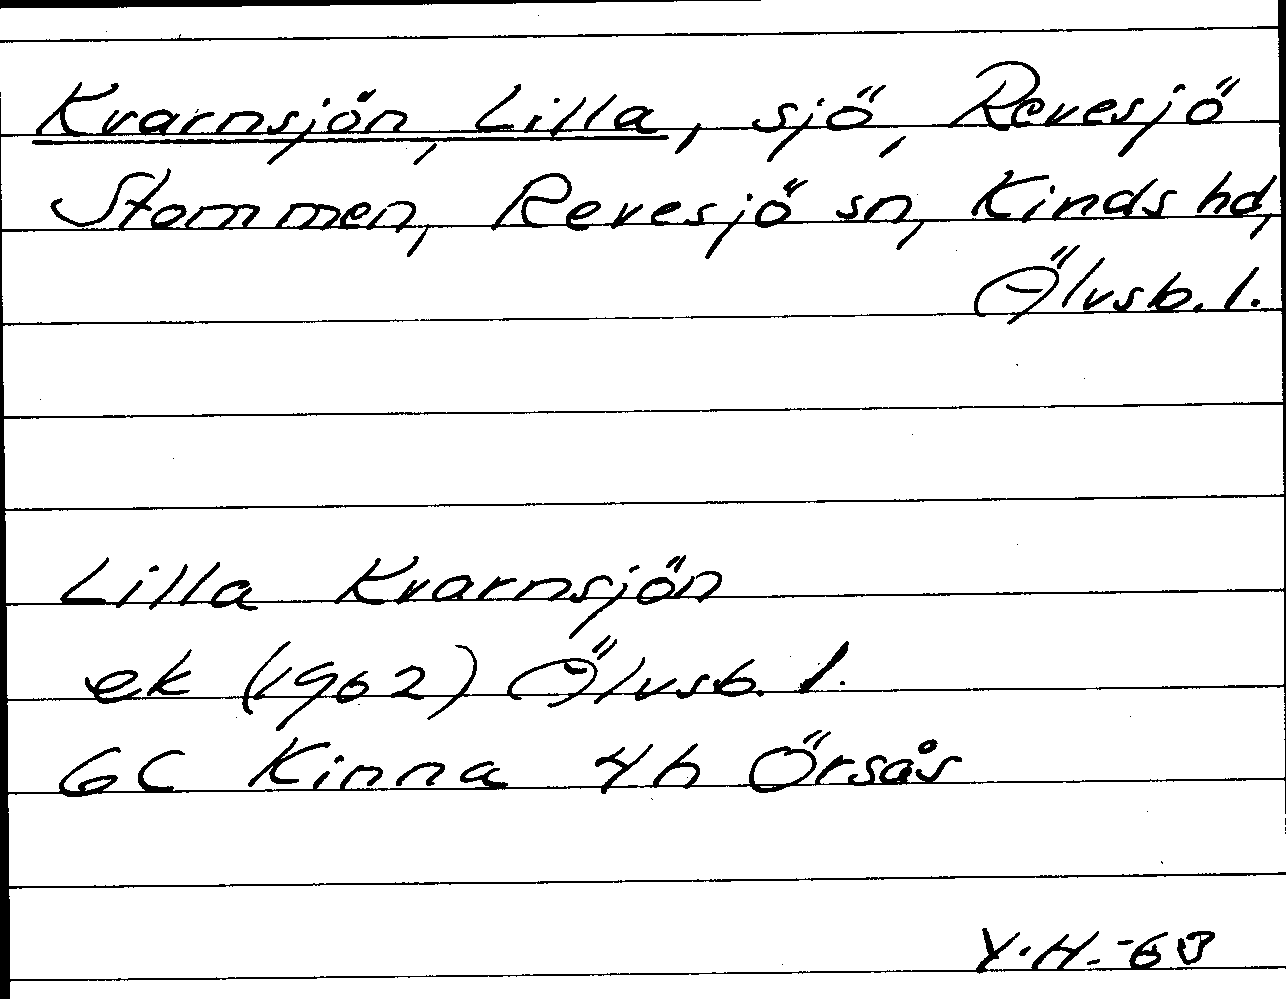 Kvarnsjön, Lilla, sjö, Revesjö
Stommen, Revesjö sn, Kinds hd,
Älvsb. l.
Lilla Kvarnsjön
ek (1962) Älvsb. l.
6C Kinna 4h Örsås
Y.H.-63